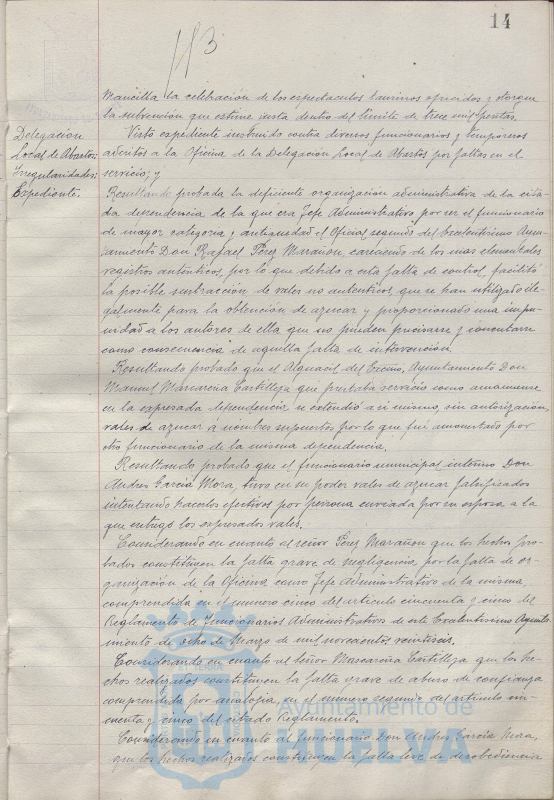 14
113
Mancilla la celebración de los espectáculos taurinos ofrecidos y otorgue
la subvención que estime justa dentro del límite de trece mil pesetas.
Delegación
Local de Abastos:
Irregularidades:
Expediente.
Visto expediente instruido contra diversos funcionarios y temporeros
adscritos a la Oficina de la Delegación Local de Abastos por faltas en el
servicio; y
Resultando probada la deficiente organización administrativa de la cita-
da dependencia de la que era Jefe Administrativo, por ser el funcionario
de mayor categoría y antigüedad el Oficial segundo del Excelentísimo Ayun-
tamiento Don Rafael Pérez Marañon, careciendo de los mas elementales
registros auténticos, por lo que debido a esta falta de control, facilitó
la posible sustracción de vales no autenticos, que se han utilizado ile-
galmente para la obtención de azucar y proporcionado una impu-
nidad a los autores de ella que no pueden precisarse y concretarse
como consecuencia de aquella falta de intervención.
Resultando probado que el Alguacil del Excmo. Ayuntamiento Don
Manuel Mascareña Castilleja que prestaba servicio como amanuense
en la expresada dependencia se extendió a sí mismo, sin autorización,
vales de azucar a nombres supuestos por lo que fué amonestado por
otro funcionario de la misma dependencia.
Resultando probado que el funcionario municipal interino Don
Andres García Mora, tuvo en su poder vales de azucar falsificados
intentando hacerlos efectivos por persona enviada por su esposa a la
que entregó los expresados vales.
Considerando en cuanto al señor Pérez Marañon que los hechos pro-
bados constituyen la falta grave de negligencia, por la falta de or-
ganización de la Oficina como Jefe Administrativo de la misma,
comprendida en el numero cinco del articulo cincuenta y cinco del
Reglamento de Funcionarios Administrativos de este Excelentísimo Ayunta-
miento de ocho de Marzo de mil novecientos veintiseis.
Considerando en cuanto al señor Mascareña Castilleja que los he-
chos realizados constituyen la falta grave de abuso de confianza
comprendida por analogia, en el numero segundo del articulo cin-
cuenta y cinco del citado Reglamento.
Considerando en cuanto al funcionario Don Andrés García Mora,
que los hechos realizados constituyen la falta leve de desobediencia
Ayuntamiento de
HUELVA